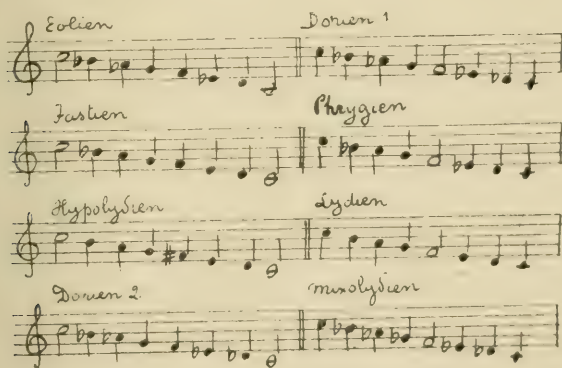 Eolien Dorien 1
Iastien Phrygien
Hypolydien Lydien
Dorien 2. mixolydien